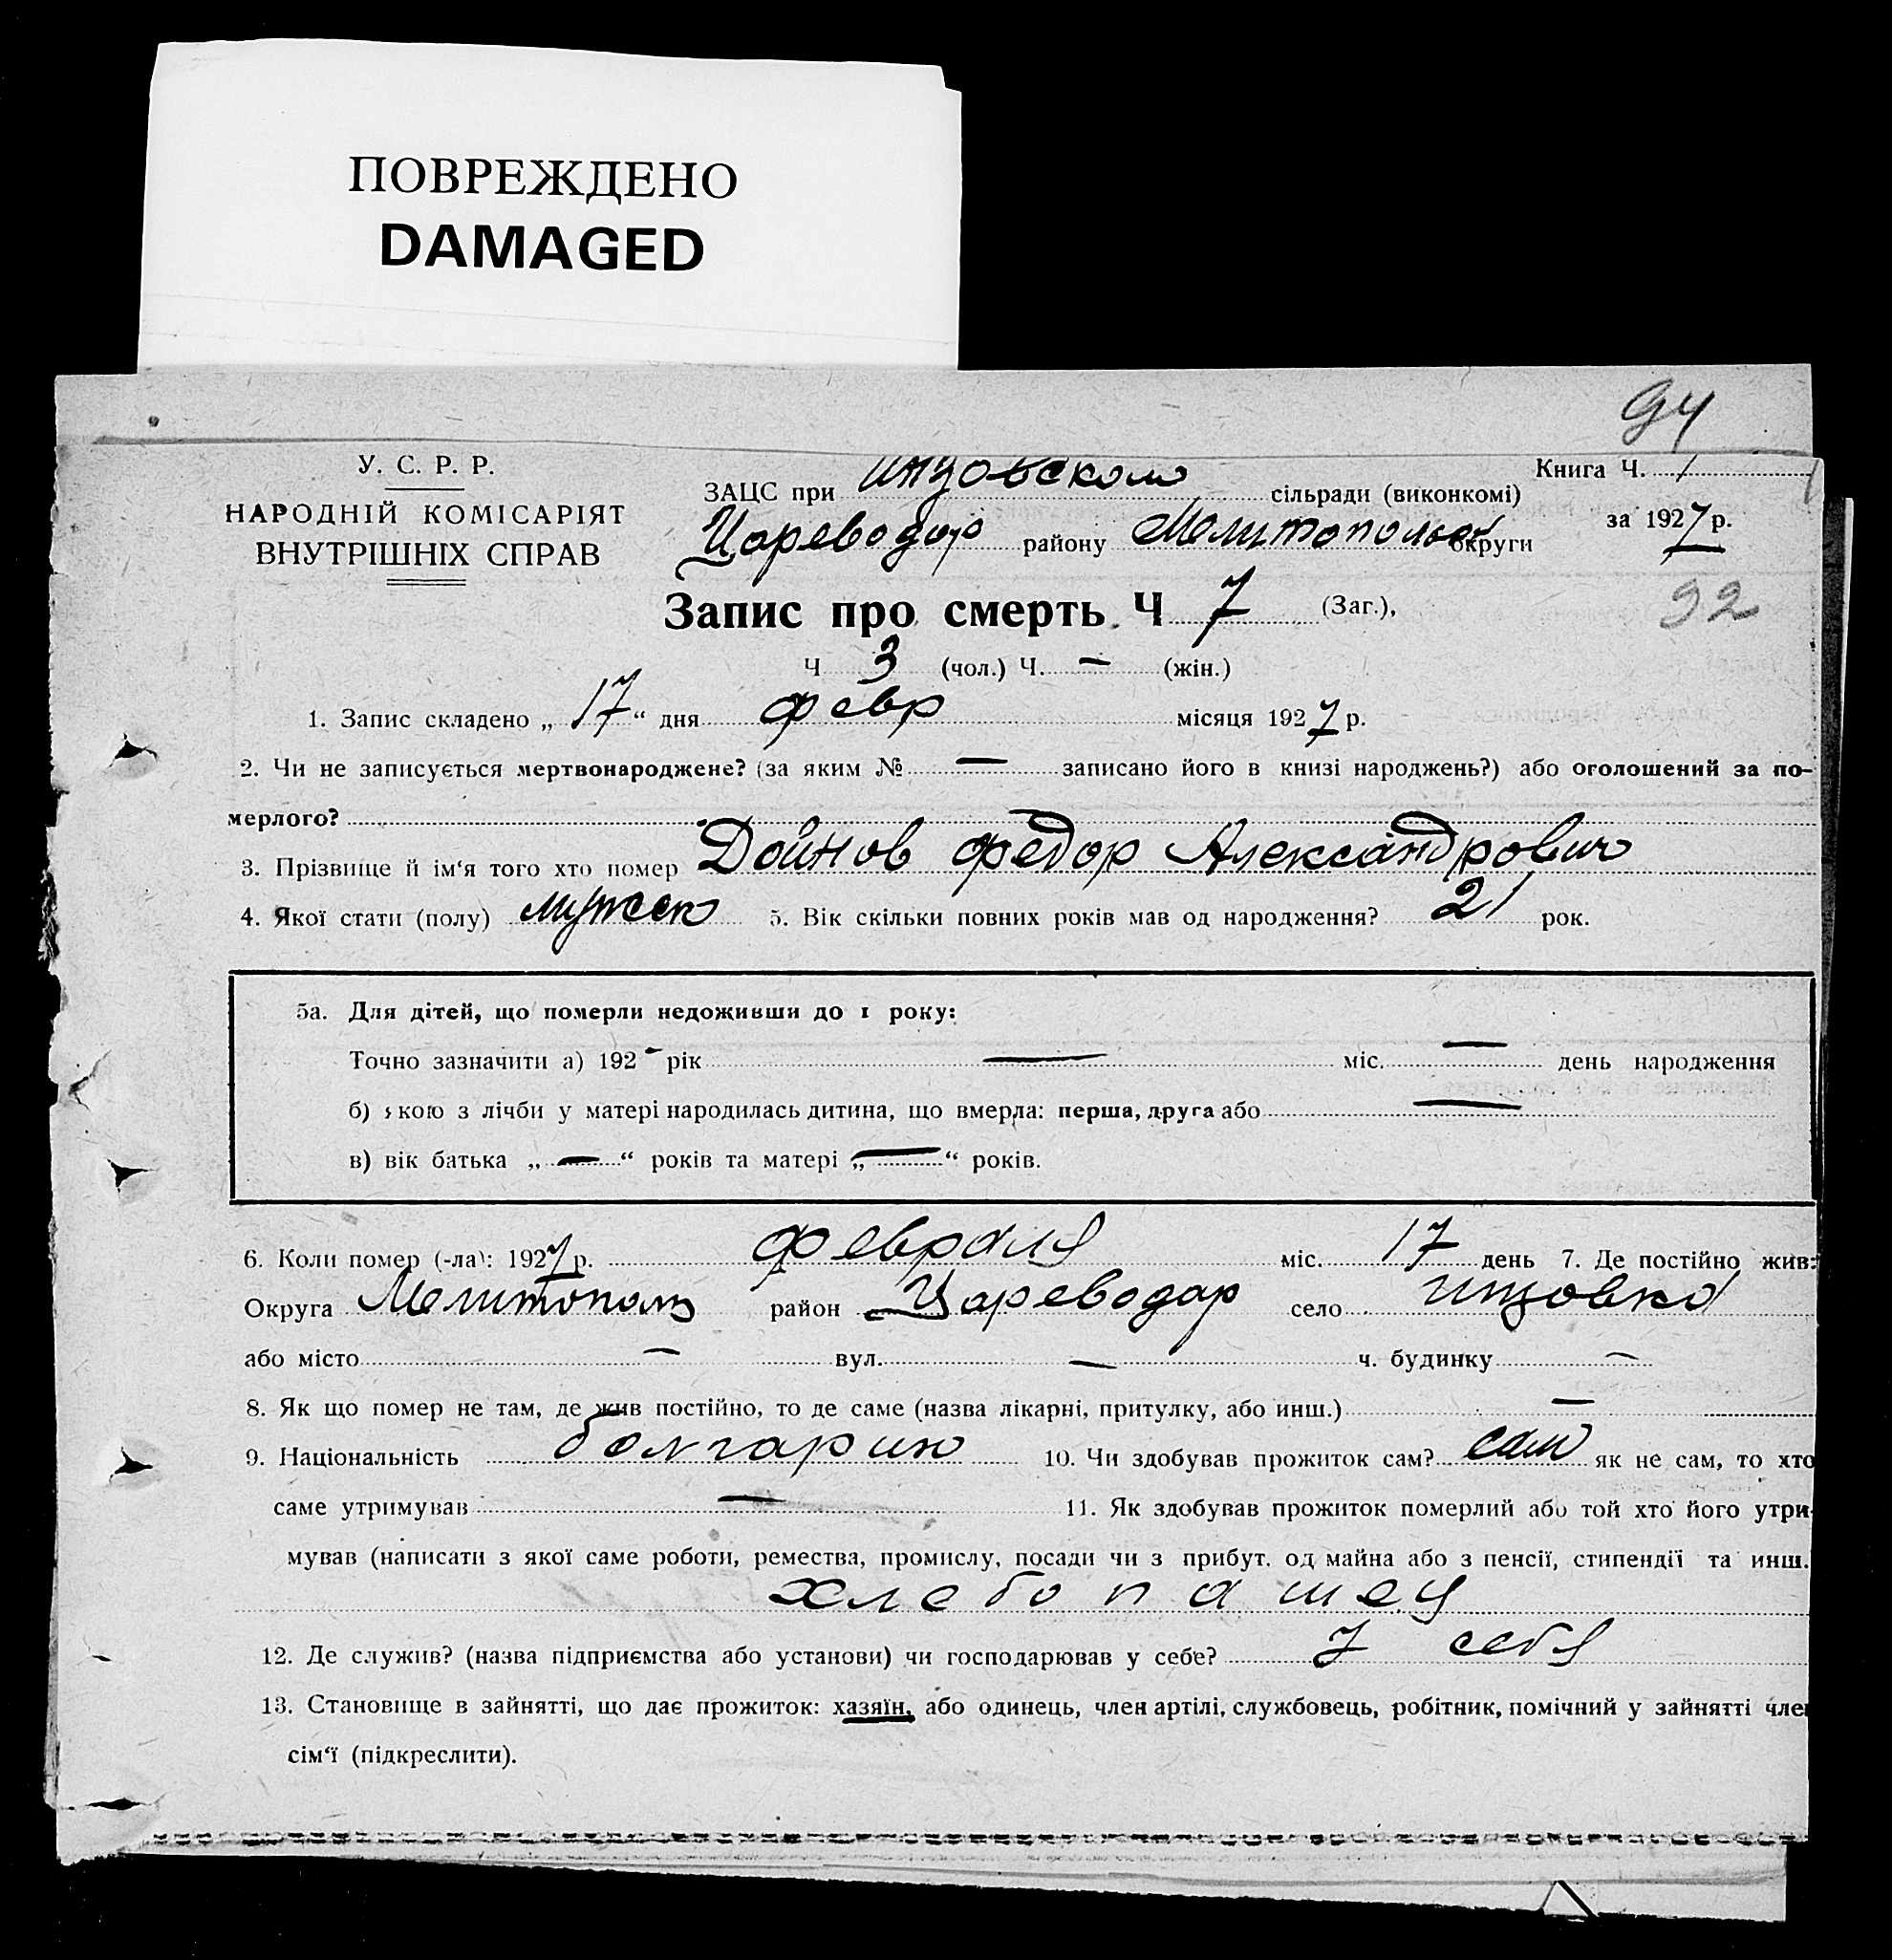 ПОВРЕЖДЕНО
DAMAGED
94
У. С. Р. Р.
НАРОДНІЙ КОМІСАРІЯТ
ВНУТРІШНІХ СПРАВ
Книга Ч. 1
ЗАЦС при Инзовском сільради (виконкомі)
за 1927 р.
Цареводар району Мелитопольск округи
Запис про смерть Ч 7 (Заг.),
92
Ч 3 (чол.) Ч. — (жін.)
1. Запис складено „ 17 “ дня февр місяця 1927 р.
2. Чи не записується мертвонароджене? (за яким № — записано його в книзі народжень?) або оголошений за по-
мерлого?
3. Прізвище й ім‘я того хто помер Дойнов Федор Александрович
4. Якої стати (полу) мужск 5. Вік скільки повних років мав од народження? 21 рок.
5а. Для дітей, що померли недоживши до 1 року:
Точно зазначити а) 192 - рік — міс. — день народження
б) якою з лічби у матері народилась дитина, що вмерла: перша, друга або —
в) вік батька „ — “ років та матері „ — “ років.
6. Коли помер (-ла): 1927 р. февраля міс. 17 день 7. Де постійно жив:
Округа Мелитополь район Цареводар село
або місто — вул. — ч. будинку —
8. Як що помер не там, де жив постійно, то де саме (назва лікарні, притулку, або инш.) —
9. Національність болгарин 10. Чи здобував прожиток сам? сам як не сам, то хто
саме утримував — 11. Як здобував прожиток померлий або той хто його утри-
мував (написати з якої саме роботи, ремества, промислу, посади чи з прибут. од майна або з пенсії, стипендії та инш.
хлебопашец
12. Де служив? (назва підприємства або установи) чи господарював у себе? У себя
13. Становище в зайнятті, що дає прожиток: хазяїн, або одинець, член артілі, службовець, робітник, помічний у зайнятті член
сім‘ї (підкреслити).